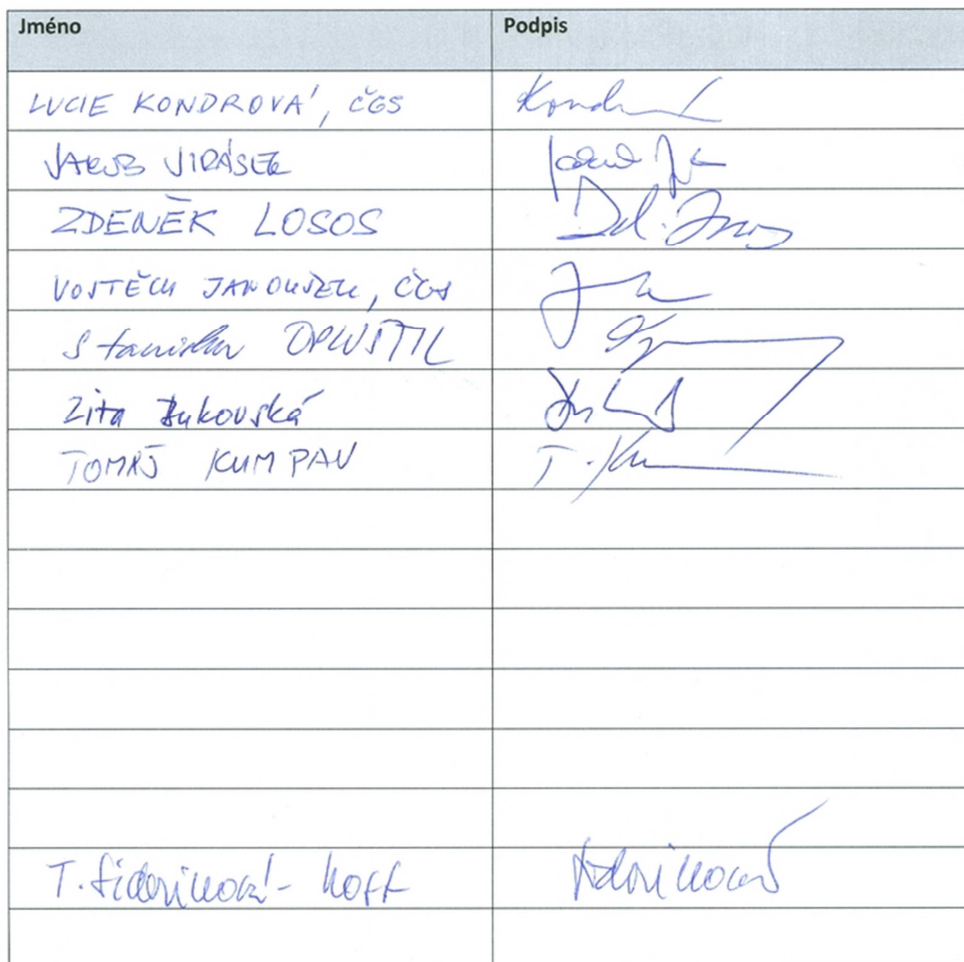 Jméno Podpis
LUCIE KONDROVÁ, ČGS Kondr
JAKUB JIRÁSEK
ZDENĚK LOSOS
VOJTĚCH JANOUŠEK, ČGS
Stanislav OPLUŠTIL
Zita Bukovská
TOMÁŠ KUMPAN T. Kum
T. Sidorinová - Hoff Sidorinová